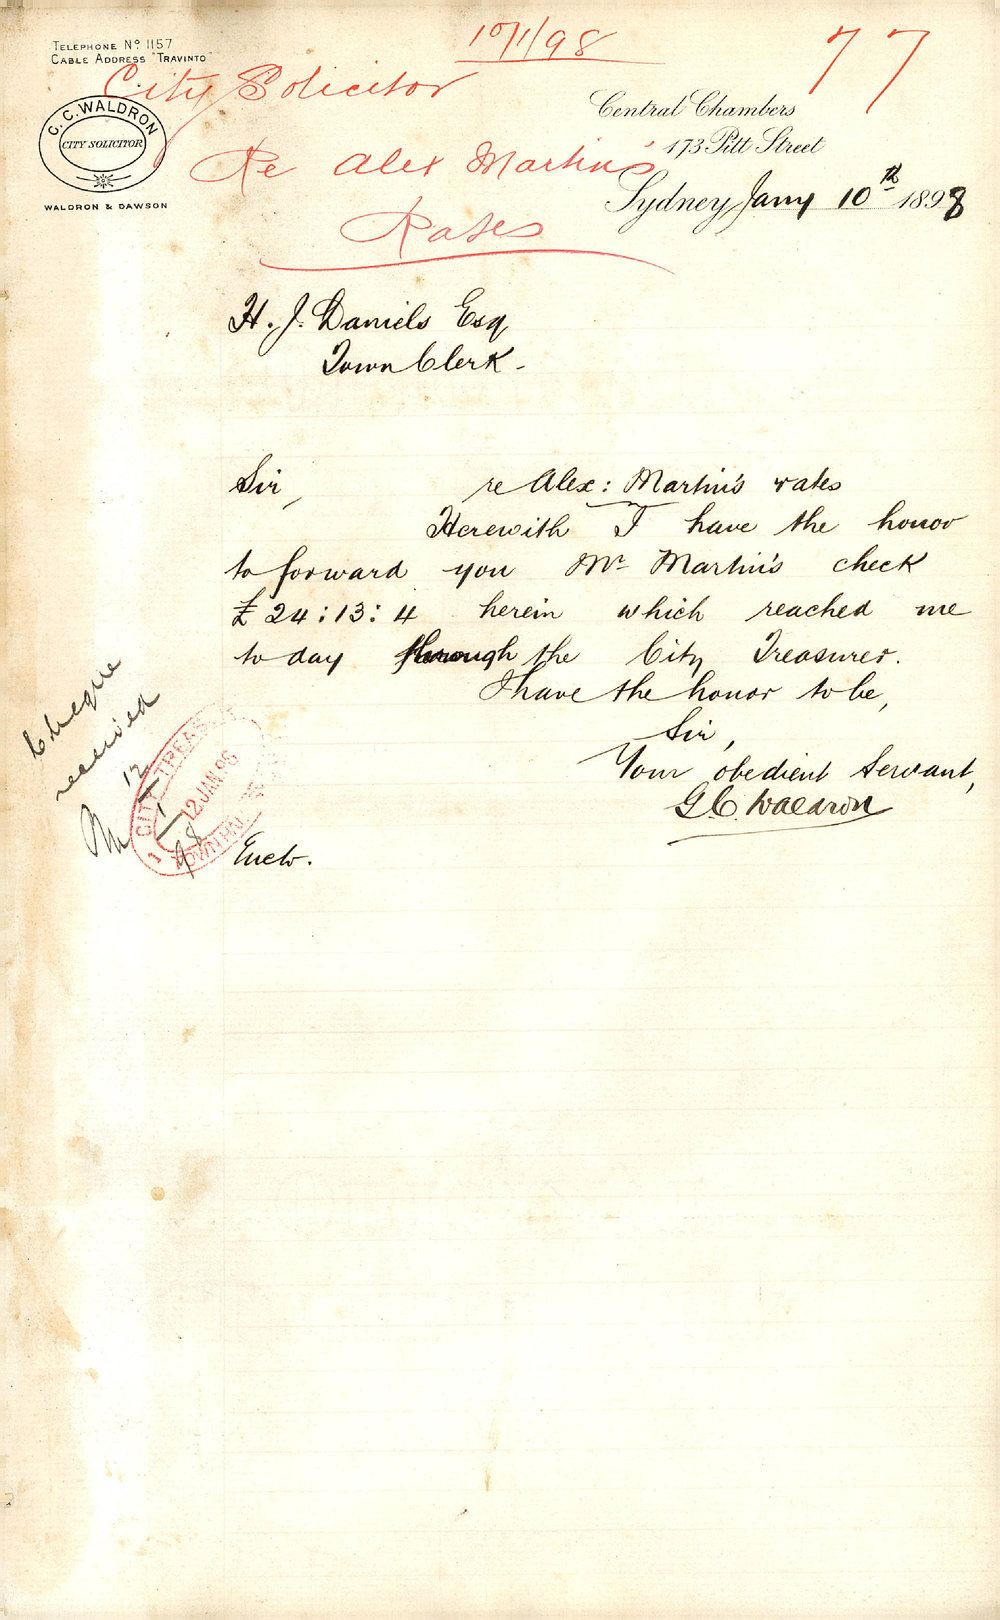 TELEPHONE No 1157
CABLE ADDRESS "TRAVINTO"
G. C. WALDRON
CITY SOLICITOR
WALDRON & DAWSON
10/1/98
77
City Solicitor
Re Alex Martin's
Rates
Central Chambers
173 Pitt Street
Sydney Jany 10th 1898
H. J. Daniels Esq
Town Clerk.
Sir,
re Alex: Martin's rates
Herewith I have the honor
to forward you Mr Martin's check
£24:13:4 herein which reached me
to day through the City Treasurer.
I have the honor to be,
Sir,
Your obedient Servant,
G. C. Waldron
Encl.
Cheque
received
12
1
98
CITY TREAS
12 JAN. 98
TOWN HALL